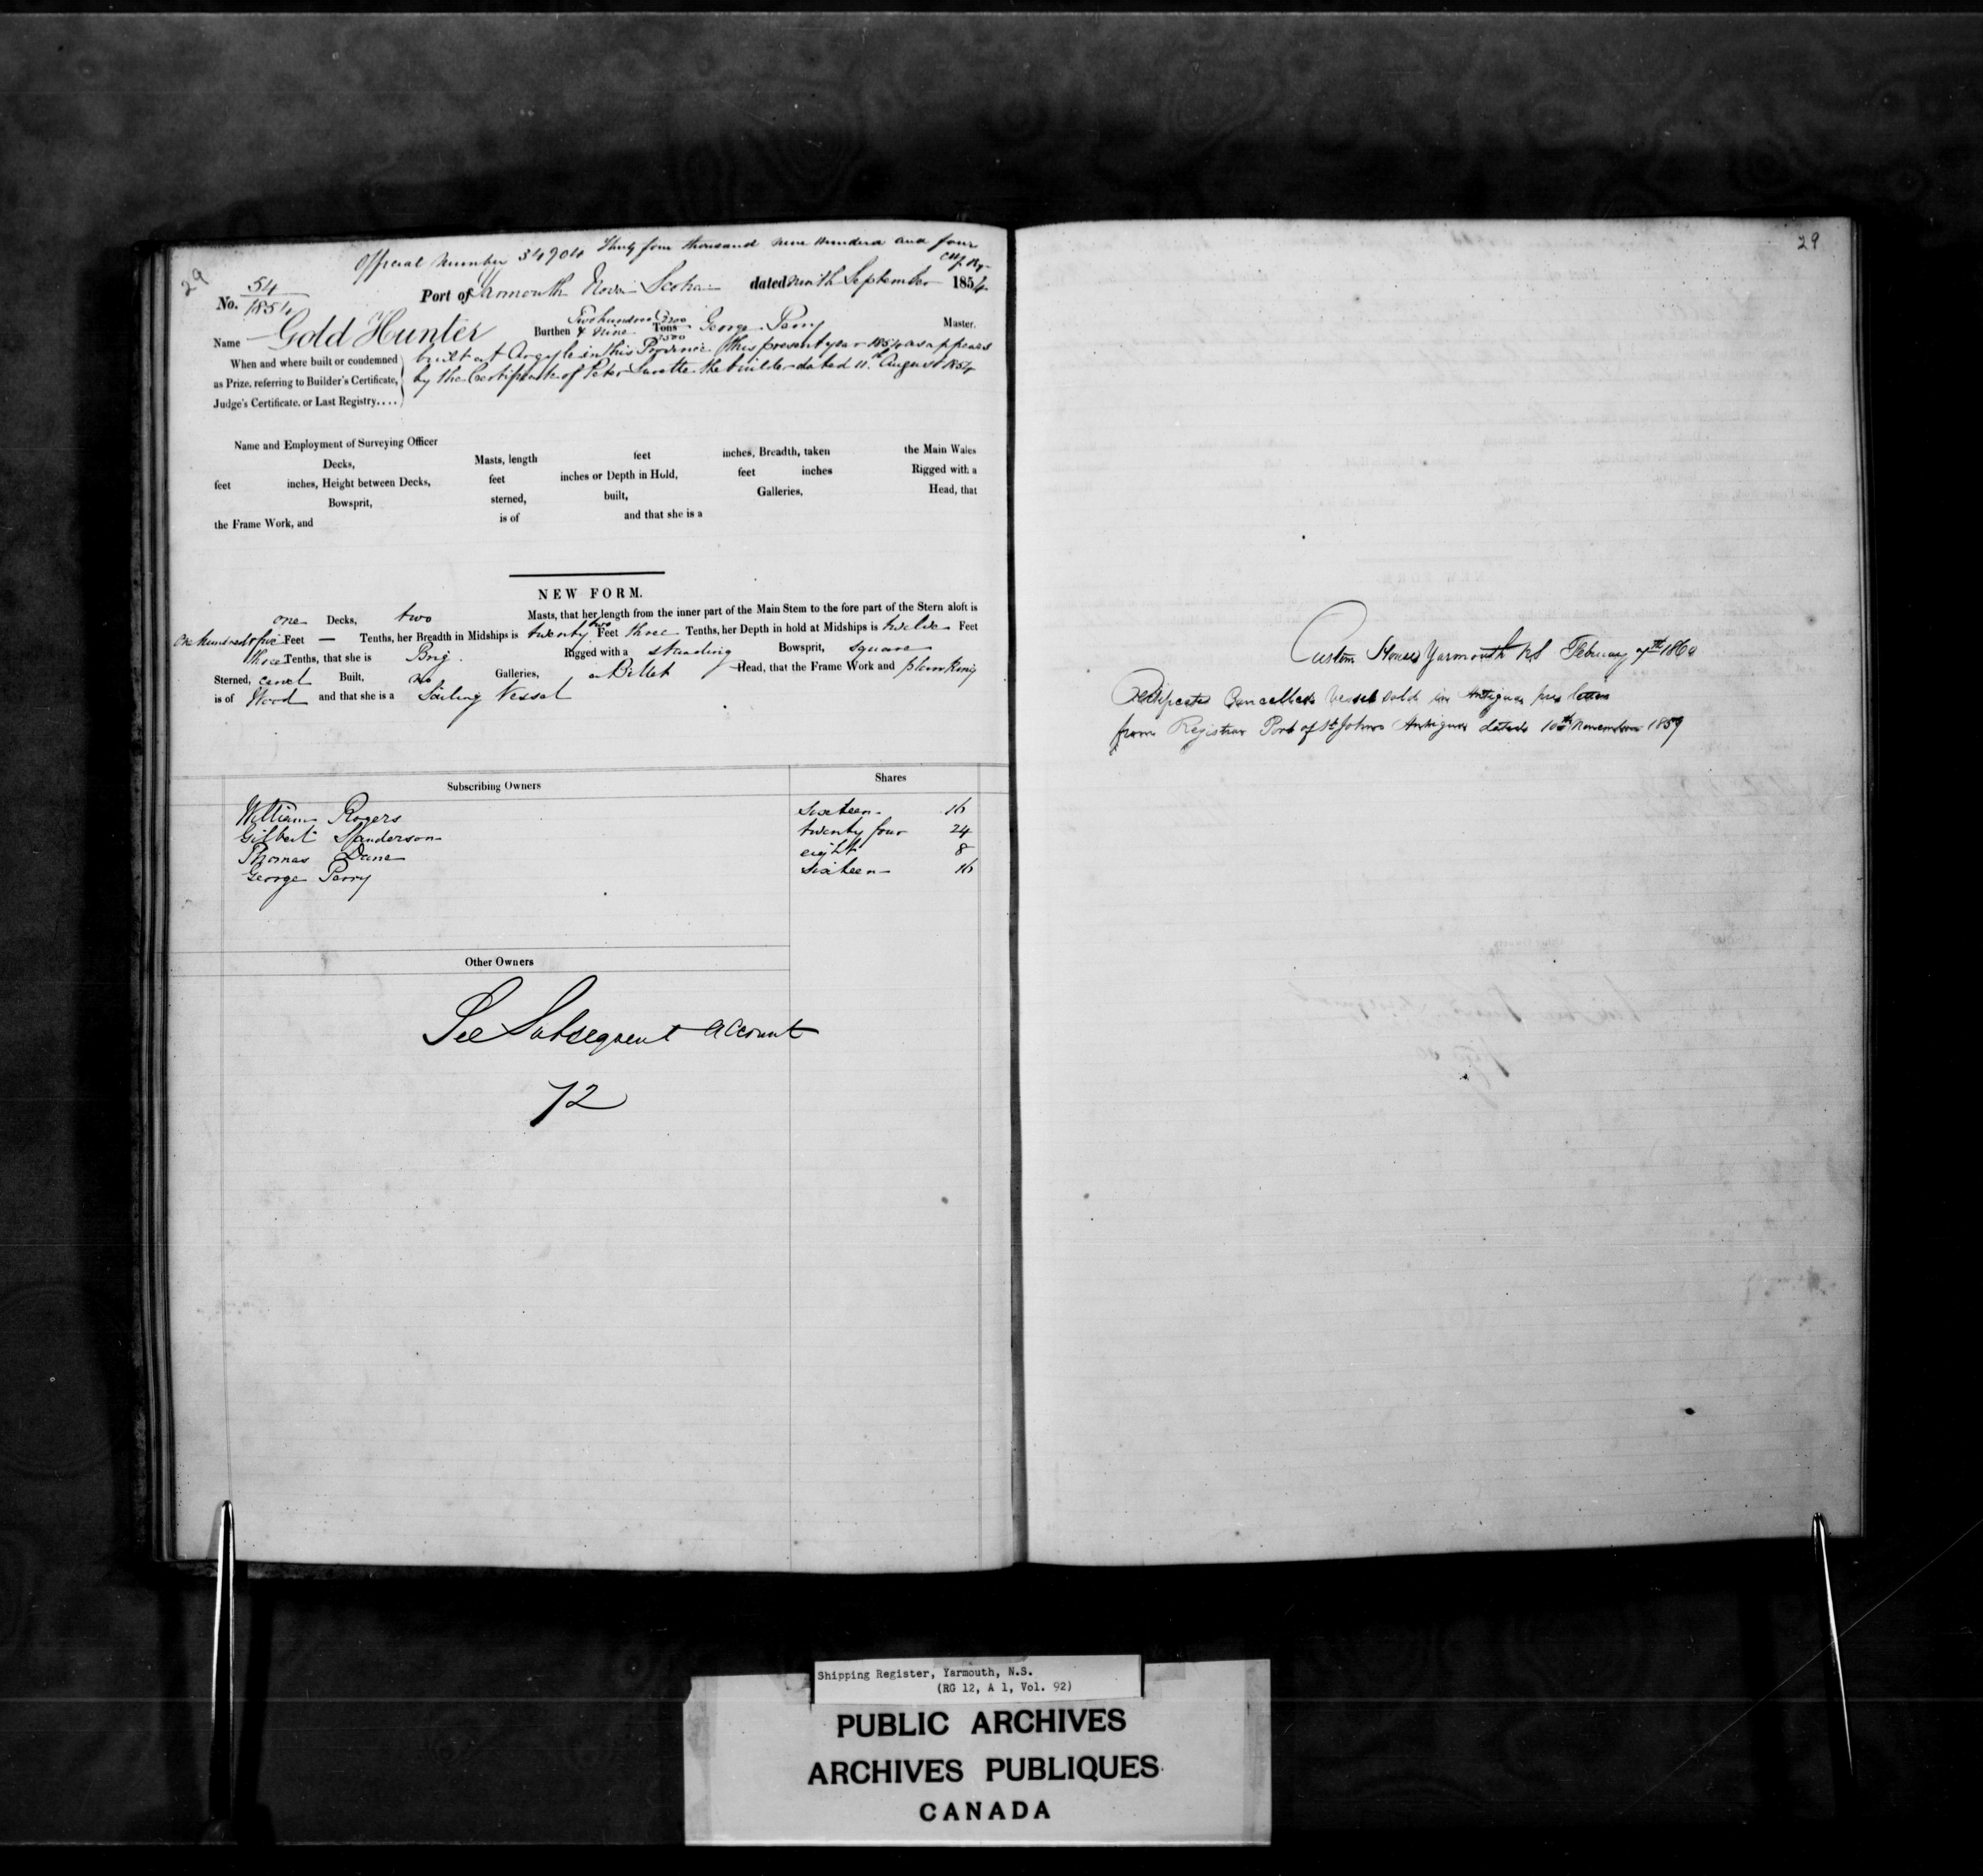 Official Number 34904 Thirty four thousand nine hundred and four
29
No. 54/1854 Port of Yarmouth Nova Scotia dated ninth September 1854
Name Gold Hunter Burthen Two hundred & nine Tons George Perry Master.
When and where built or condemned as Prize, referring to Builder's Certificate, Judge's Certificate, or Last Registry....
built at Argyle in this Province this present year 1854 as appears
by the Certificate of Peter Surette the builder dated 11th August 1854
Name and Employment of Surveying Officer
Decks, Masts, length feet inches, Breadth, taken the Main Wales
feet inches, Height between Decks, feet inches or Depth in Hold, feet inches Rigged with a
Bowsprit, sterned, built, Galleries, Head, that
the Frame Work, and is of and that she is a
NEW FORM.
one Decks, two Masts, that her length from the inner part of the Main Stem to the fore part of the Stern aloft is
One hundred & five Feet — Tenths, her Breadth in Midships is twenty two Feet three Tenths, her Depth in hold at Midships is twelve Feet
three Tenths, that she is Brig. Rigged with a standing Bowsprit, square
Sterned, carvel Built, no Galleries, a Billet Head, that the Frame Work and planking
is of Wood and that she is a Sailing Vessel
Subscribing Owners Shares
William Rogers sixteen 16
Gilbert Sanderson twenty four 24
Thomas Dane eight 8
George Perry sixteen 16
Other Owners
See Subsequent account
72
29
Custom House Yarmouth NS February 7th 1860
Certificate Cancelled Vessel sold in Antigua per letter
from Registrar Port of St Johns Antigua dated 10th November 1859
Shipping Register, Yarmouth, N.S.
(RG 12, A 1, Vol. 92)
PUBLIC ARCHIVES
ARCHIVES PUBLIQUES
CANADA